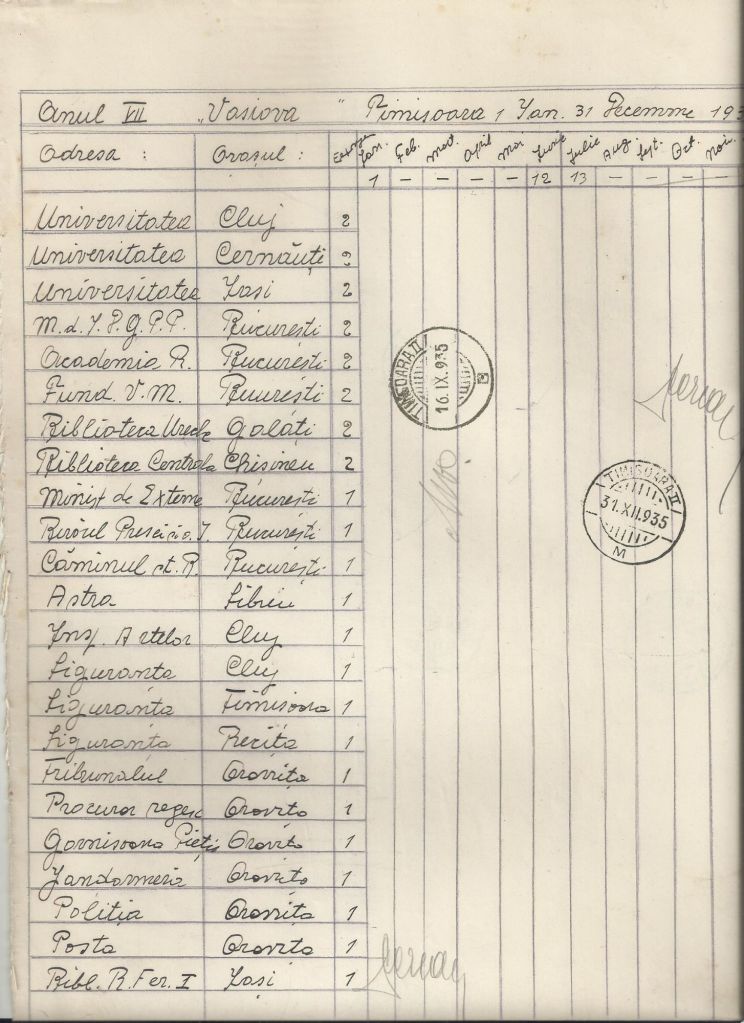 Anul VII "Vasiova" Timisoara 1 Ian. 31 Decemvrie 193
Adresa : Orașul : Ian. Feb. Mart. April Mai Iunie Iulie Aug. Sept. Oct. Noiu.
1 – – – – 12 13 – – – –
Universitatea Cluj 2
Universitatea Cernăuți 2
Universitatea Iasi 2
M.d.I.P.G.P.P. București 2
Academia R. București 2
Fund. V.M. București 2
Biblioteca Ureche Galáti 2
Biblioteca Centrala Chisineu 2
Minist de Externe București 1
Biroul Presei București 1
Căminul st. R. București 1
Astra Sibiu 1
Insp. Artelor Cluj 1
Siguranta Cluj 1
Siguranta Timisoara 1
Siguranta Recita 1
Tribunalul Oravita 1
Procuror regesc Oravita 1
Garnisoana Oravita 1
Jandarmeria Oravita 1
Politia Oravita 1
Posta Oravita 1
Bibl. R. Fer. I Iași 1
TIMISOARA II
16.IX.935
TIMISOARA II
31.XII.935
M